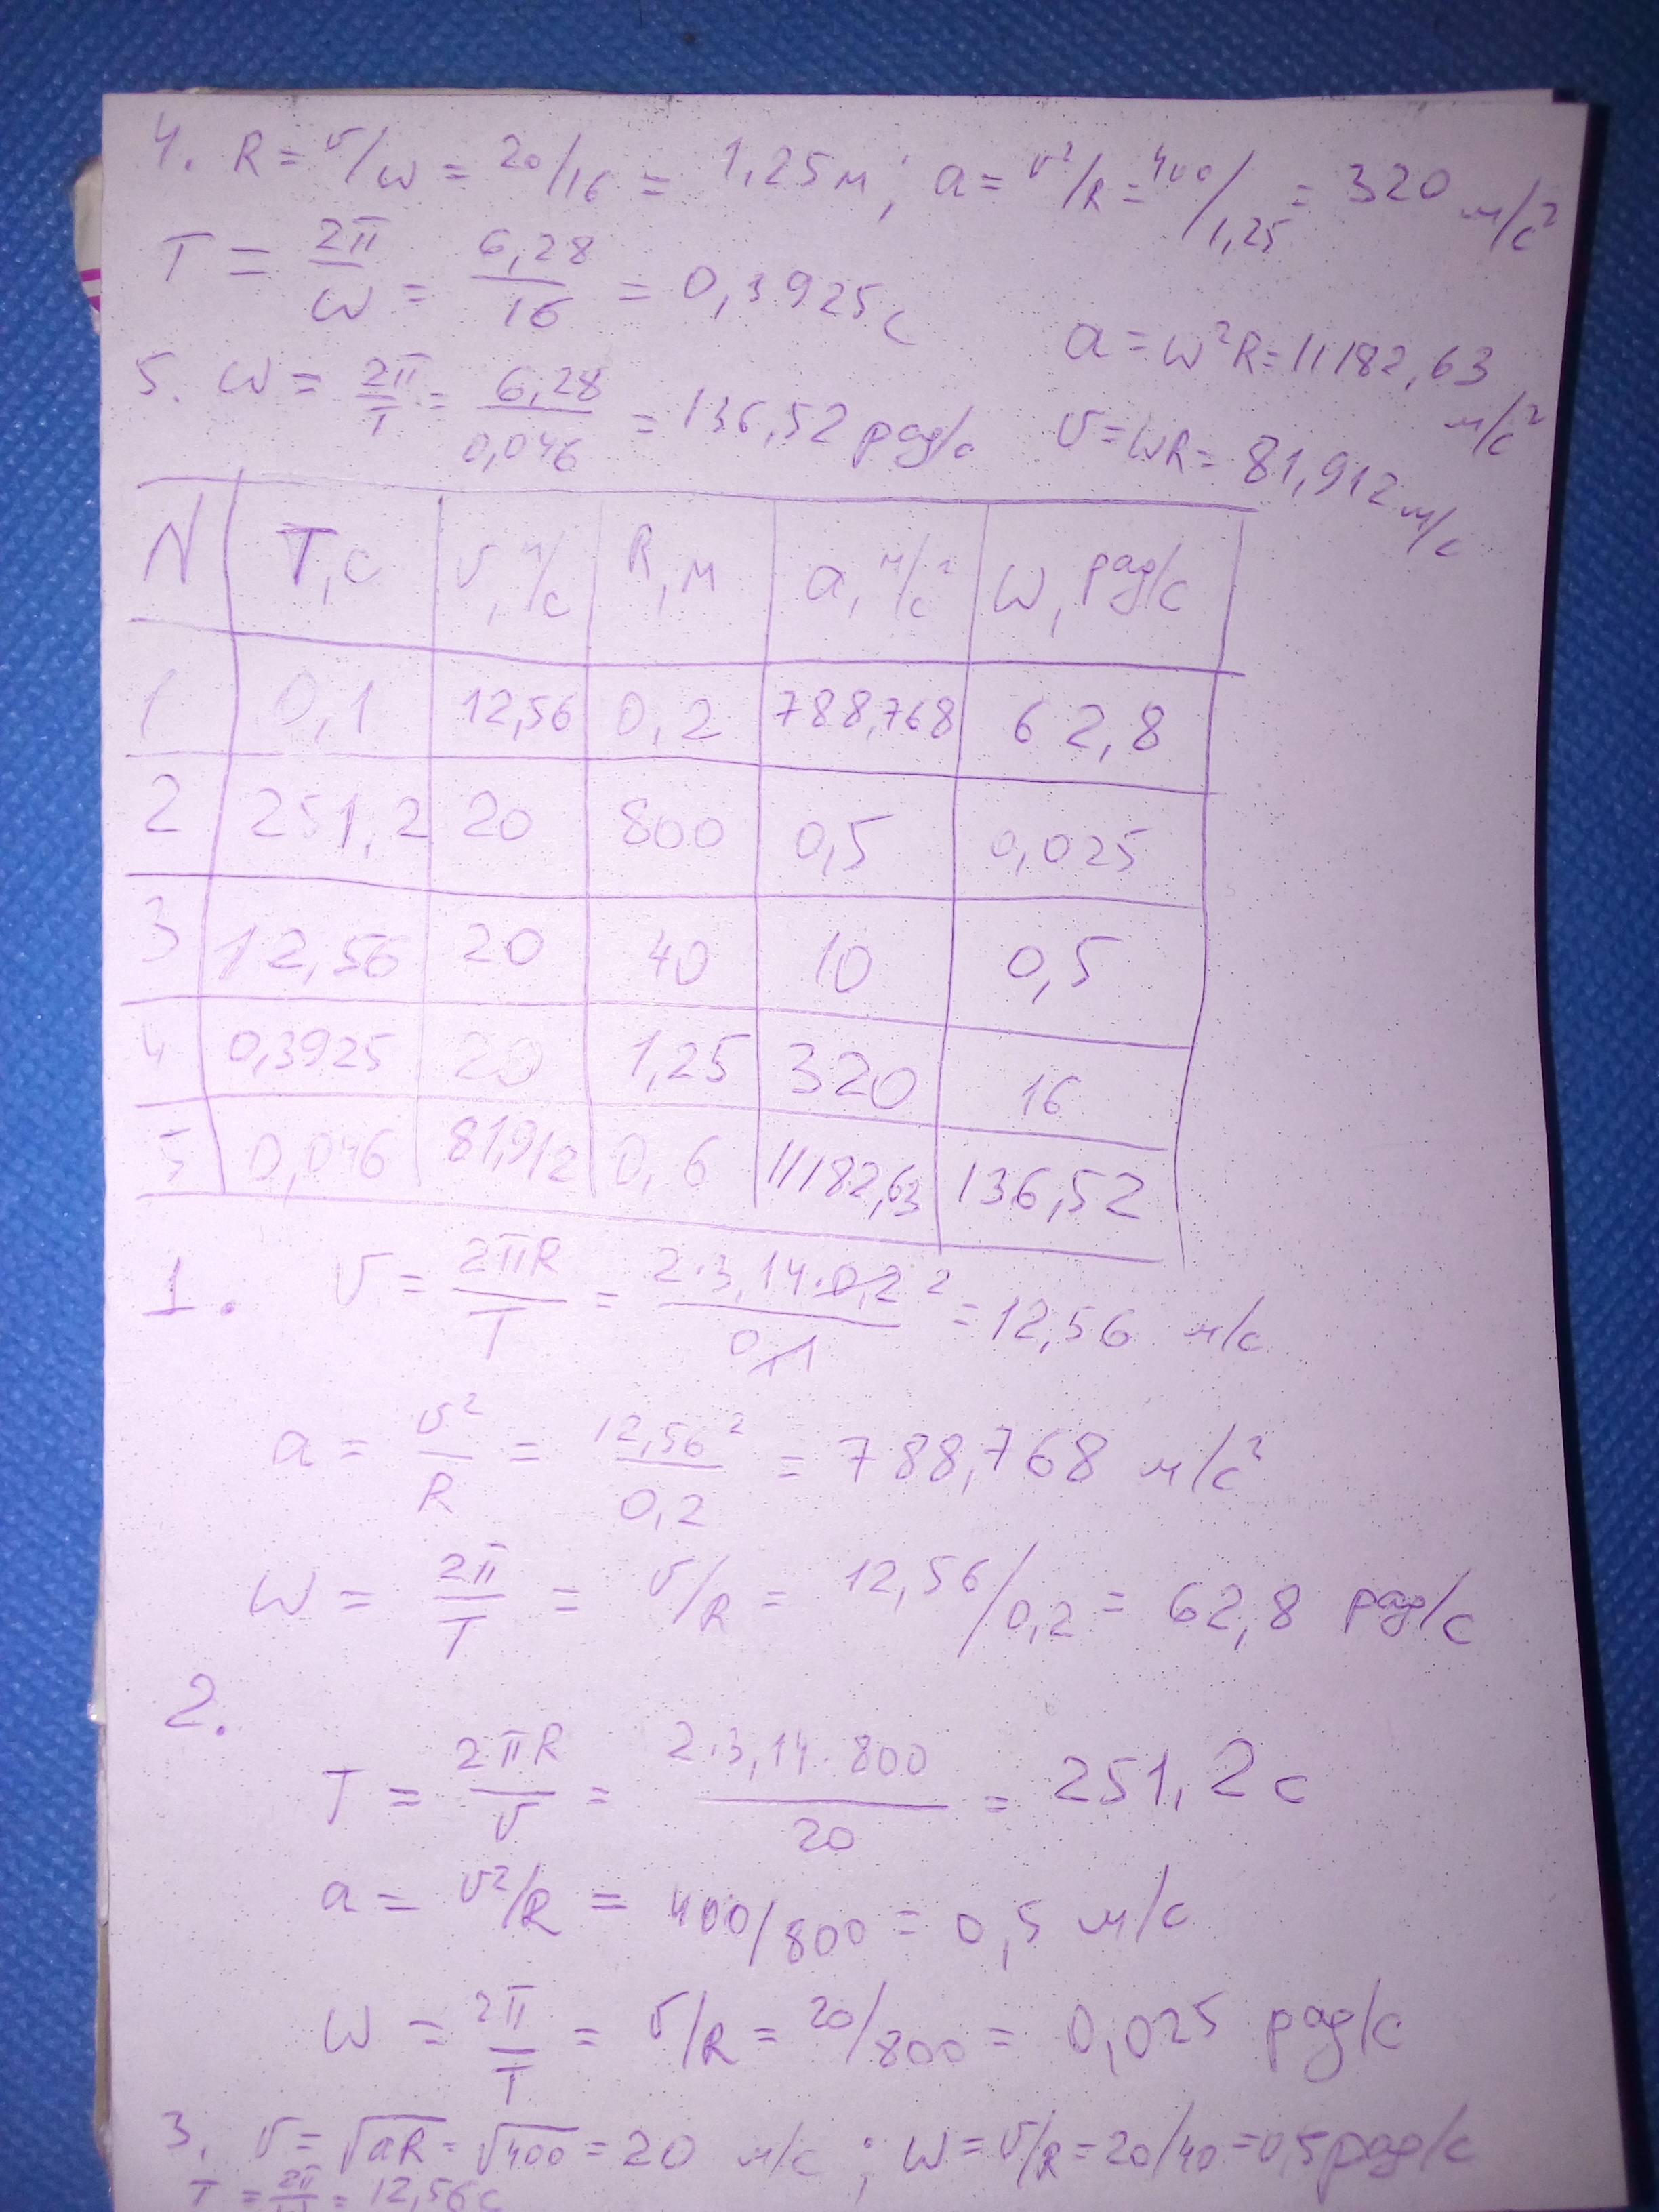 4. R = v/w = 20/16 = 1,25м; a = v²/R = 400/1,25 = 320 м/с²
T = 2π/w = 6,28/16 = 0,3925с
a = w²R = 11182,63 м/с²
5. w = 2π/T = 6,28/0,046 = 136,52 рад/с
v = wR = 81,912 м/с
N T,с v, м/с R,м a, м/с² w, рад/с
1 0,1 12,56 0,2 788,768 62,8
2 251,2 20 800 0,5 0,025
3 12,56 20 40 10 0,5
4 0,3925 20 1,25 320 16
5 0,046 81,912 0,6 11182,63 136,52
1. v = 2πR/T = 2·3,14·0,2 2/0,1 = 12,56 м/с
a = v²/R = 12,56²/0,2 = 788,768 м/с²
w = 2π/T = v/R = 12,56/0,2 = 62,8 рад/с
2.
T = 2πR/v = 2·3,14·800/20 = 251,2с
a = v²/R = 400/800 = 0,5 м/с
w = 2π/T = v/R = 20/800 = 0,025 рад/с
3. v = √aR = √400 = 20 м/с ; w = v/R = 20/40 = 0,5 рад/с
T = 2π/w = 12,56с